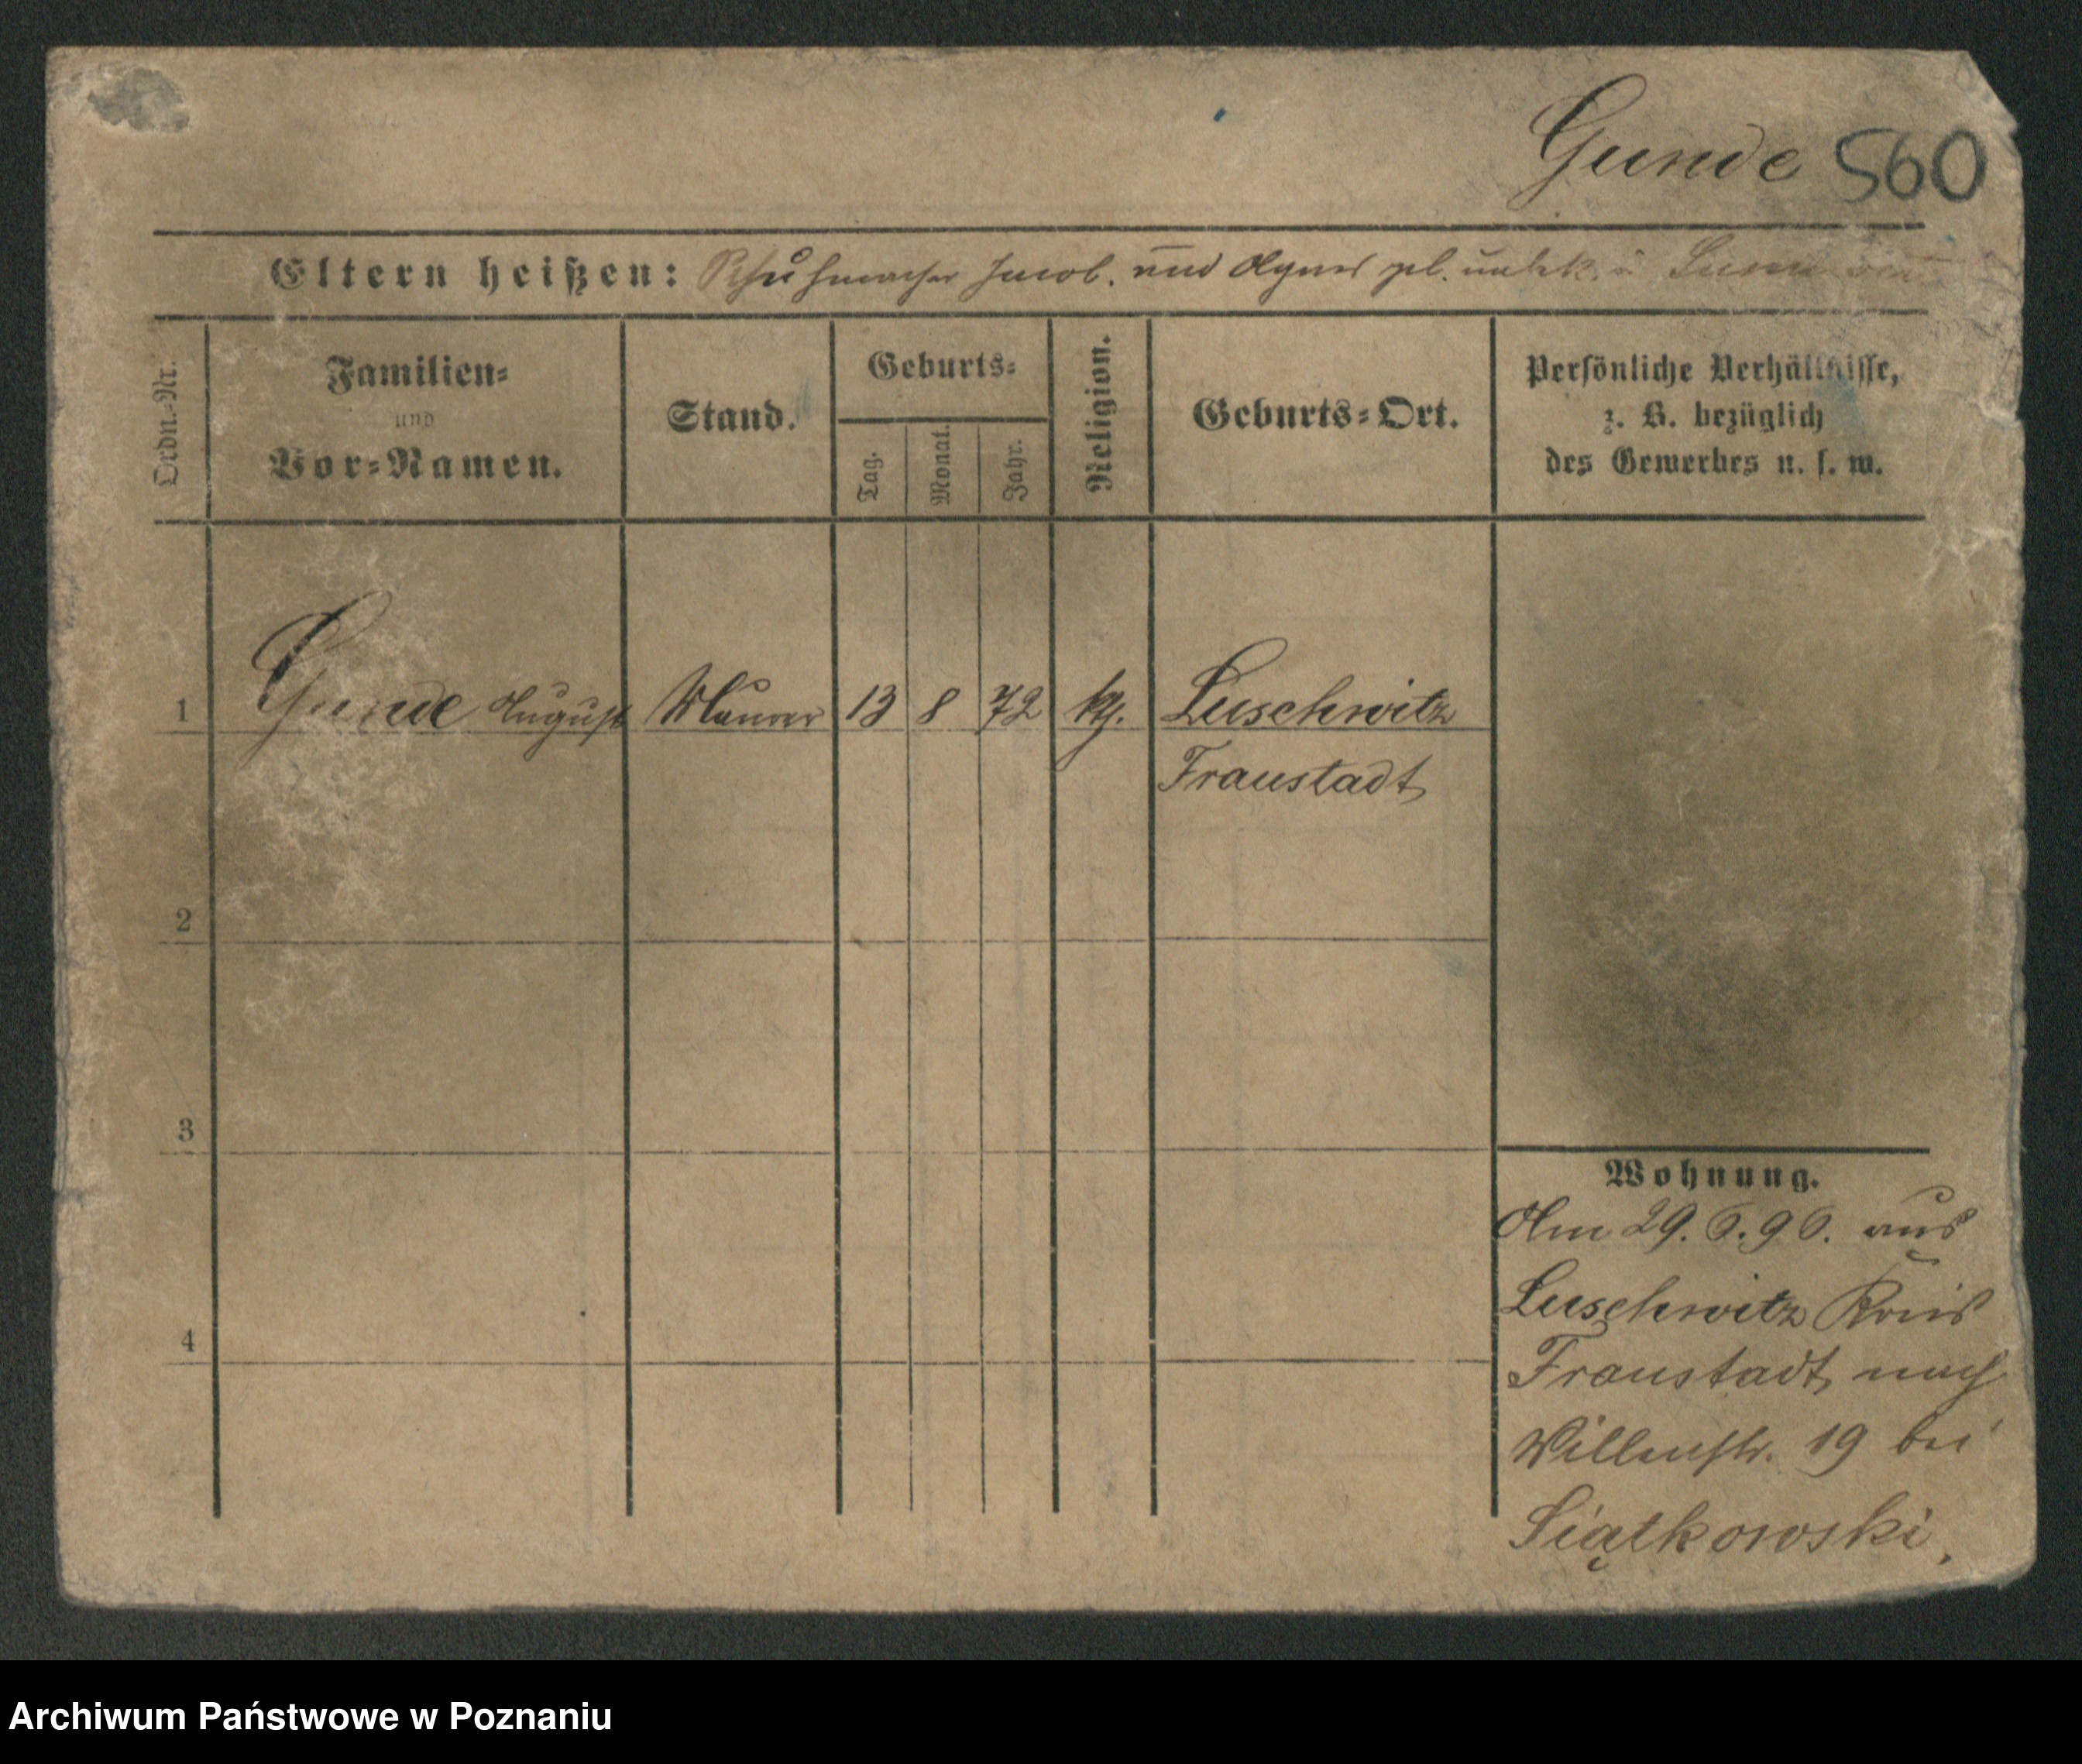 Gunde 560
Eltern heißen: Schuhmacher Jacob. und Agnes geb. unbek.
Ordn.-Nr.
Familien-
und
Vor-Namen.
Stand.
Geburts-
Tag.
Monat.
Jahr.
Religion.
Geburts-Ort.
Persönliche Verhältnisse,
z. B. bezüglich
des Gewerbes u. s. w.
1 Gunde August Maurer 13 8 72 kth. Luschwitz
Fraustadt
2
3
4
Wohnung.
Am 29. 6. 96. aus
Luschwitz Kreis
Fraustadt nach
Willenstr. 19 bei
Siątkowski.
Archiwum Państwowe w Poznaniu